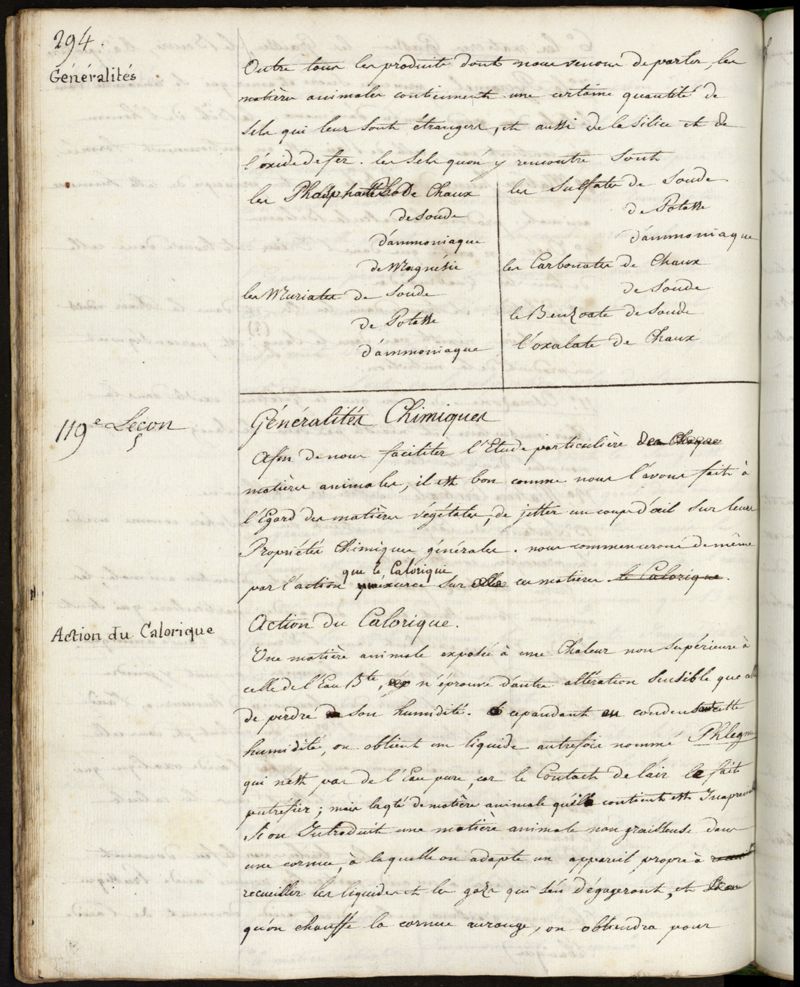 294.
Généralités
Outre tous les produits dont nous venons de parler, les
matières animales contiennent une certaine quantité de
sels qui leur sont étrangers, et aussi de la silice et de
l'oxide de fer. les sels qu'on y rencontre sont
les Phosphates De Chaux
de Soude
d'ammoniaque
de Magnésie
les Muriates de Soude
de Potasse
d'ammoniaque
les Sulfates de Soude
de Potasse
d'ammoniaque
les Carbonates de Chaux
de Soude
le Benzoate de Soude
l'oxalate de Chaux
119e Leçon
Généralités Chimiques
Afin de nous faciliter l'Etude particulière des
matières animales, il est bon comme nous l'avons fait à
l'Egard des matières végétales, de jetter un coup d'œil sur leurs
Propriétés Chimiques générales. nous commencerons de même
par l'action que le Calorique exerce sur ces matières le Calorique.
Action du Calorique
Action du Calorique.
Une matière animale exposée à une Chaleur non supérieure à
celle de l'Eau Bte, n'éprouve d'autre altération sensible que
de perdre son humidité. cependant condensant cette
humidité, on obtient un liquide autrefois nommé Phlegme
qui n'est pas de l'Eau pure, car le Contact de l'air le fait
putrefier; mais la qté de matière animale qu'il contient est
Si on Introduit une matière animale non graisseuse dans
une cornue, à laquelle on adapte un appareil propre à
recueillir les liquides et les gaz qui s'en dégageront, et
qu'on chauffe la cornue au rouge, on obtiendra pour